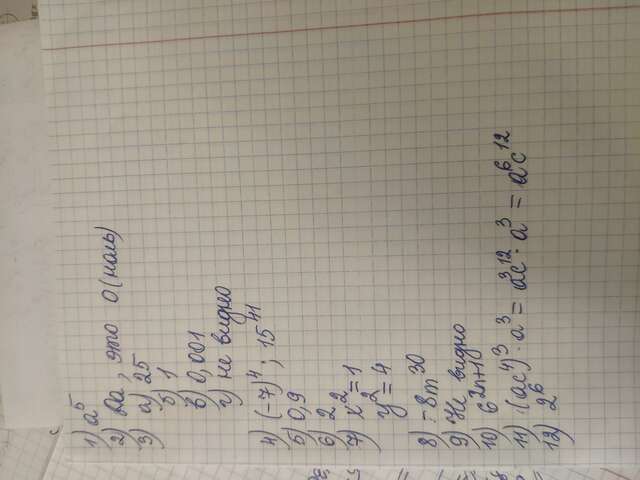 1) a⁵
2) Да, это 0 (ноль)
3) а) 25
б) 1
в) 0,001
г) не видно
4) (-7)⁴ ; 15⁴¹
5) 0,9
6) 2
7) x² = 1
y² = 4
8) -8m³⁰
9) Не видно
10) 6²ⁿ⁺¹
11) (ac⁴)³ · a³ = a³c¹² · a³ = a⁶c¹²
12) 2⁶